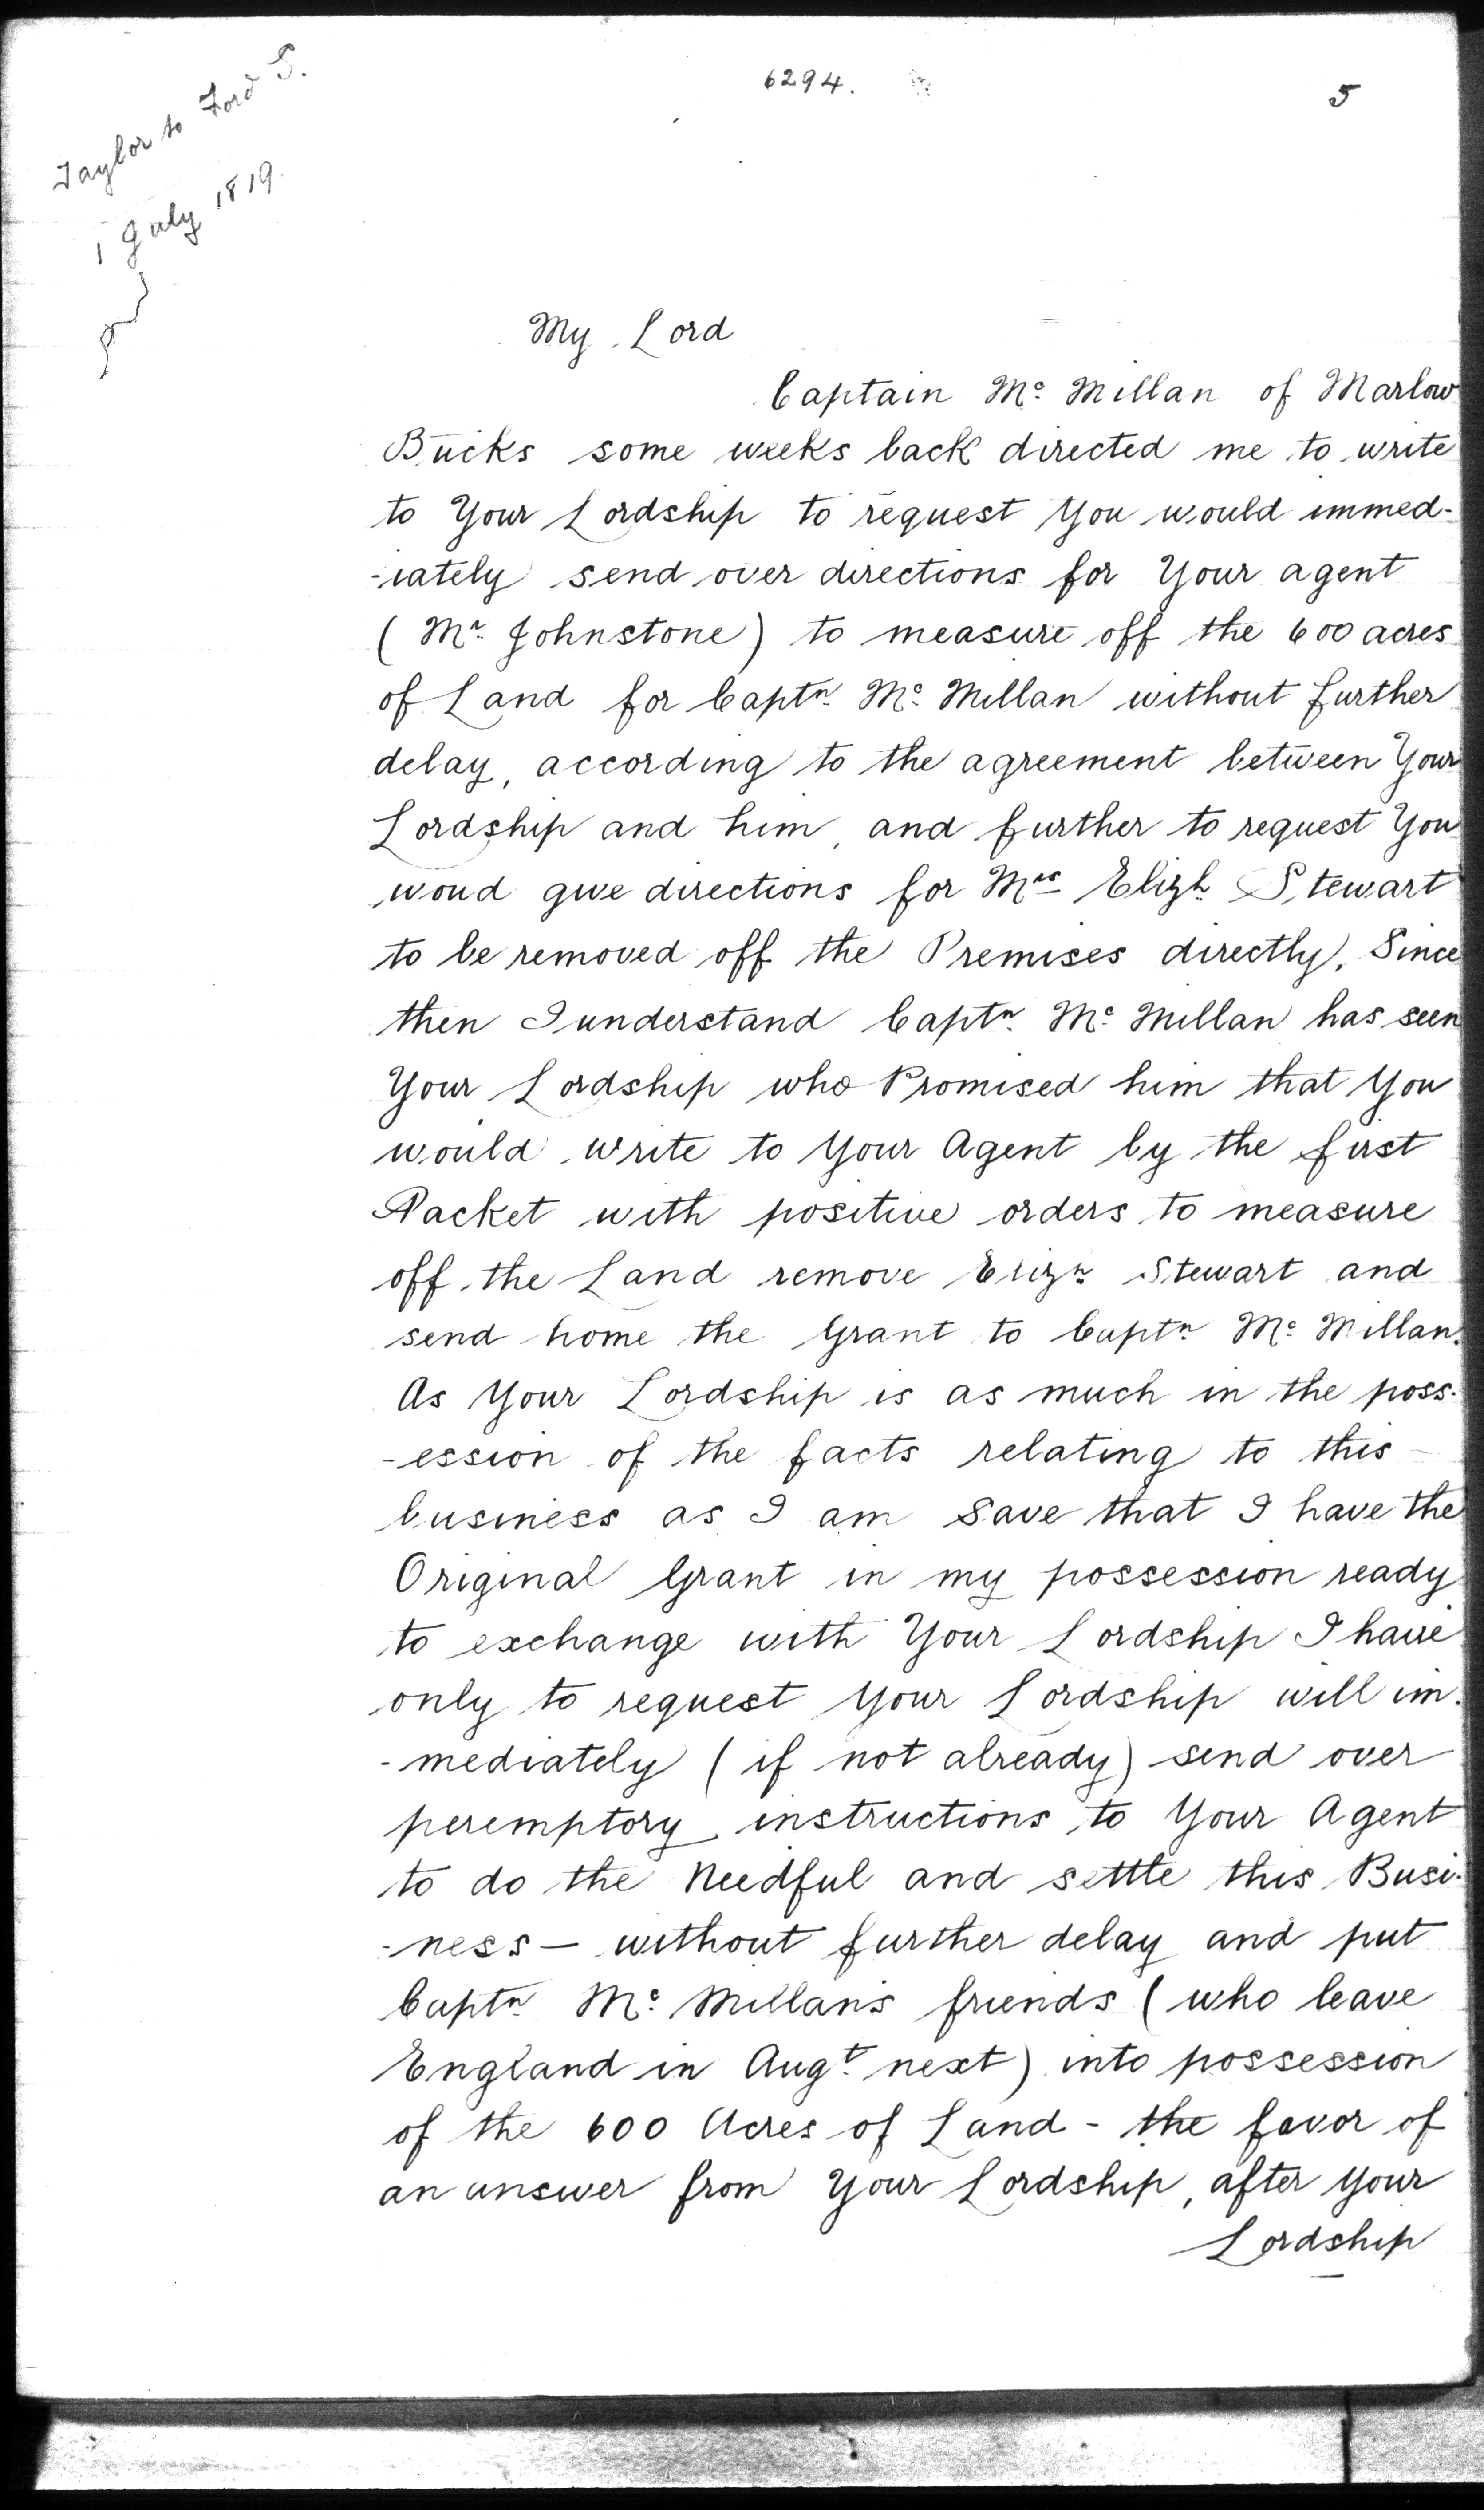 6294.
5
Taylor to Lord S.
1 July 1819.
My Lord
Captain Mc. Millan of Marlow
Bucks some weeks back directed me to write
to Your Lordship to request You would immed-
-iately send over directions for Your agent
(Mr. Johnstone) to measure off the 600 acres
of Land for Captn. Mc. Millan without further
delay, according to the agreement between Your
Lordship and him, and further to request You
woud give directions for Mrs Elizh. Stewart
to be removed off the Premises directly. Since
then I understand Captn. Mc. Millan has seen
Your Lordship who Promised him that You
would write to Your Agent by the first
Packet with positive orders to measure
off the Land remove Elizh. Stewart and
send home the Grant to Captn. Mc. Millan.
As Your Lordship is as much in the poss-
-ession of the facts relating to this
business as I am Save that I have the
Original Grant in my possession ready
to exchange with Your Lordship I have
only to request Your Lordship will im-
-mediately (if not already) send over
peremptory instructions to Your Agent
to do the Needful and settle this Busi-
-ness — without further delay and put
Captn Mc. Millans friends (who leave
England in Augt. next) into possession
of the 600 Acres of Land - the favor of
an answer from Your Lordship, after Your
Lordship